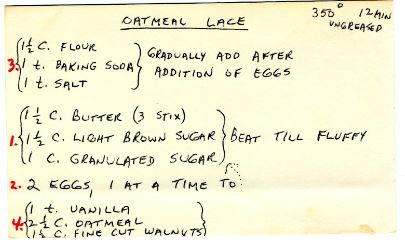 OATMEAL LACE
350° 12 MIN
UNGREASED
1½ C. FLOUR
3. 1 t. BAKING SODA
1 t. SALT
GRADUALLY ADD AFTER
ADDITION OF EGGS
1½ C. BUTTER (3 STIX)
1. 1½ C. LIGHT BROWN SUGAR
1 C. GRANULATED SUGAR
BEAT TILL FLUFFY
2. 2 EGGS, 1 AT A TIME TO
1 t. VANILLA
4. 2½ C. OATMEAL
1½ C. FINE CUT WALNUTS